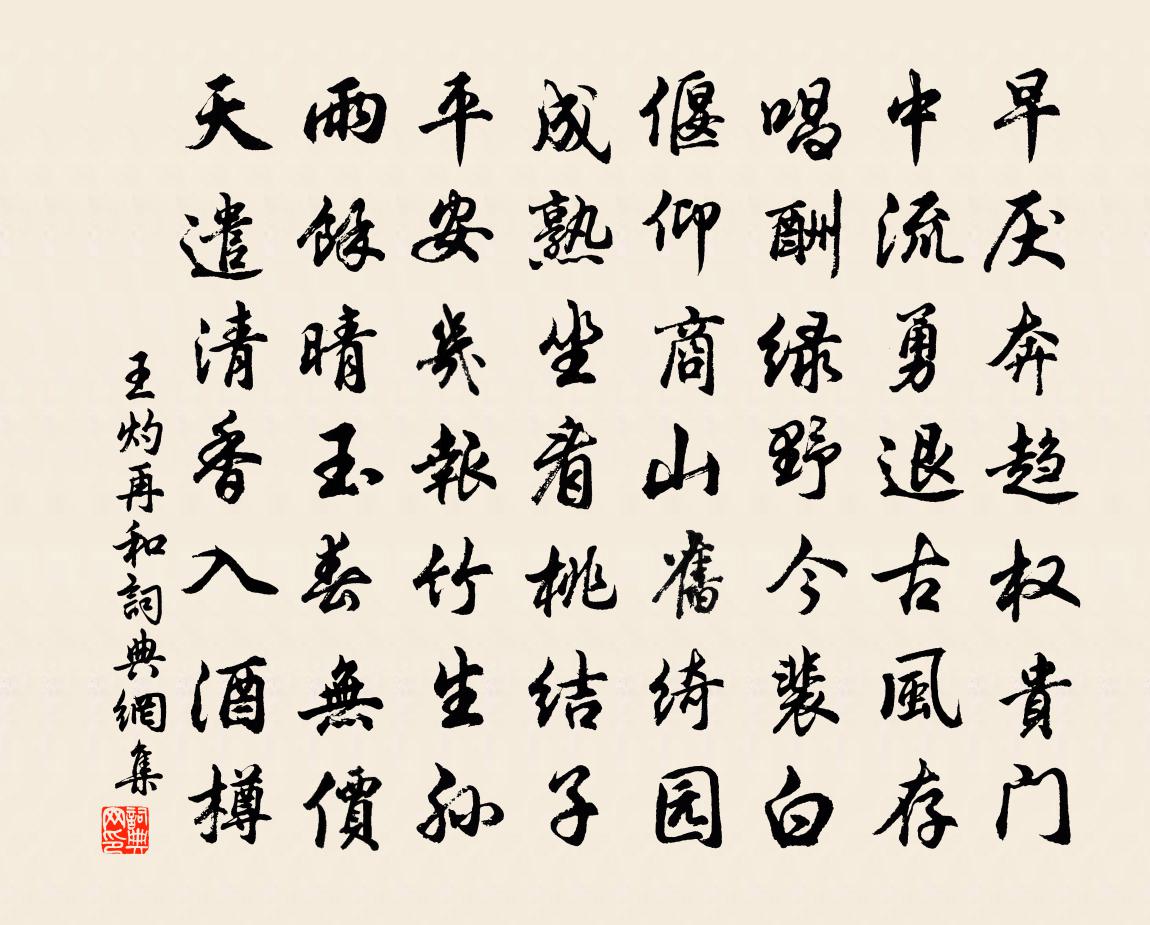 早厌奔趋权贵门
中流勇退古風存
唱酬绿野今裴白
偃仰商山舊绮园
成熟坐看桃结子
平安幾報竹生孙
雨餘晴玉春無價
天遣清香入酒樽
王灼再和詞典網集
詞典网印